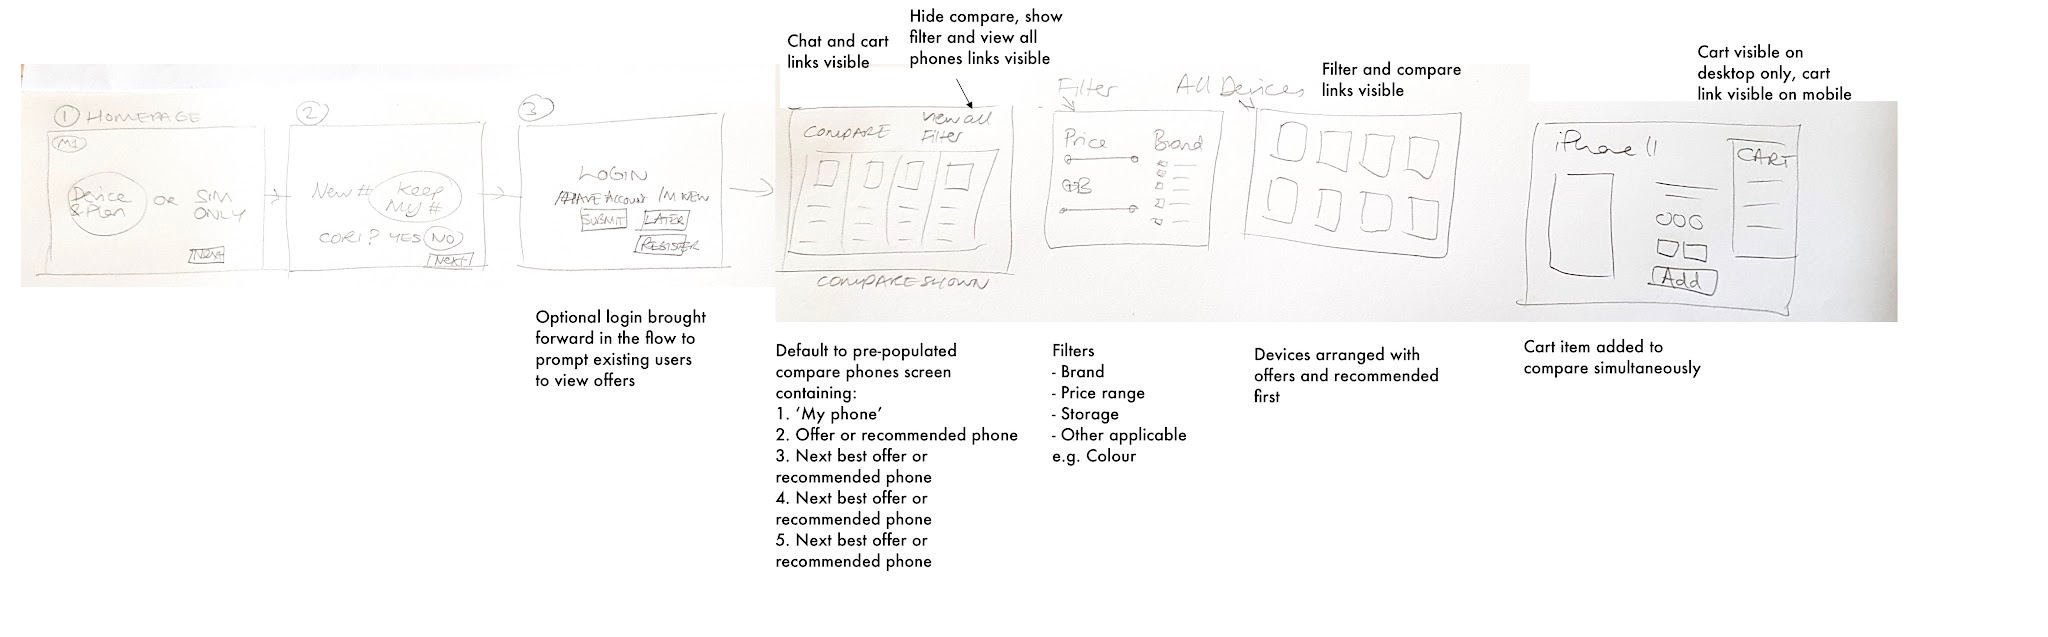 Chat and cart
links visible
Hide compare, show
filter and view all
phones links visible
Filter and compare
links visible
Cart visible on
desktop only, cart
link visible on mobile
1 HOMEPAGE
M1
Device
& Plan
OR
SIM
ONLY
NEXT
2
New #
Keep
My #
CORP? YES NO
NEXT
3
LOGIN
I HAVE ACCOUNT
I'M NEW
SUBMIT
LATER
REGISTER
COMPARE
View all
Filter
COMPARE SHOWN
Filter
Price
Brand
GB
All Devices
iPhone 11
CART
Add
Optional login brought
forward in the flow to
prompt existing users
to view offers
Default to pre-populated
compare phones screen
containing:
1. ‘My phone’
2. Offer or recommended phone
3. Next best offer or
recommended phone
4. Next best offer or
recommended phone
5. Next best offer or
recommended phone
Filters
- Brand
- Price range
- Storage
- Other applicable
e.g. Colour
Devices arranged with
offers and recommended
first
Cart item added to
compare simultaneously